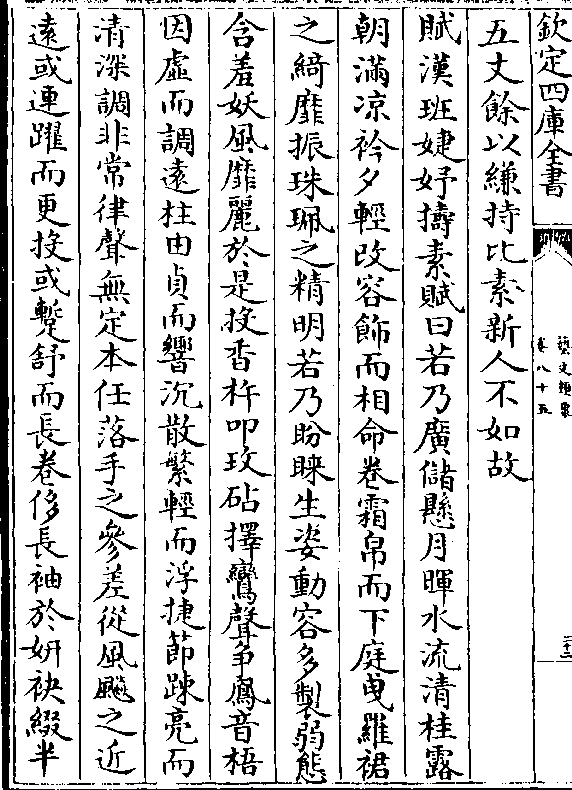 欽定四庫全書
藝文類聚
卷八十五
二十二
五丈餘以縑持比素新人不如故
賦漢班婕妤擣素賦曰若乃廣儲懸月暉水流清桂露
朝滿凉衿夕輕改容飾而相命卷霜帛而下庭曵羅裙
之綺靡振珠珮之精明若乃盼睞生姿動容多製弱態
含羞妖風靡麗於是投香杵叩玫砧擇鸞聲争鳳音梧
因虛而調遠柱由貞而響沉散繁輕而浮捷節踈亮而
清深調非常律聲無定本任落手之參差從風飈之近
遠或連躍而更投或蹔舒而長卷侈長袖於妍袂綴半